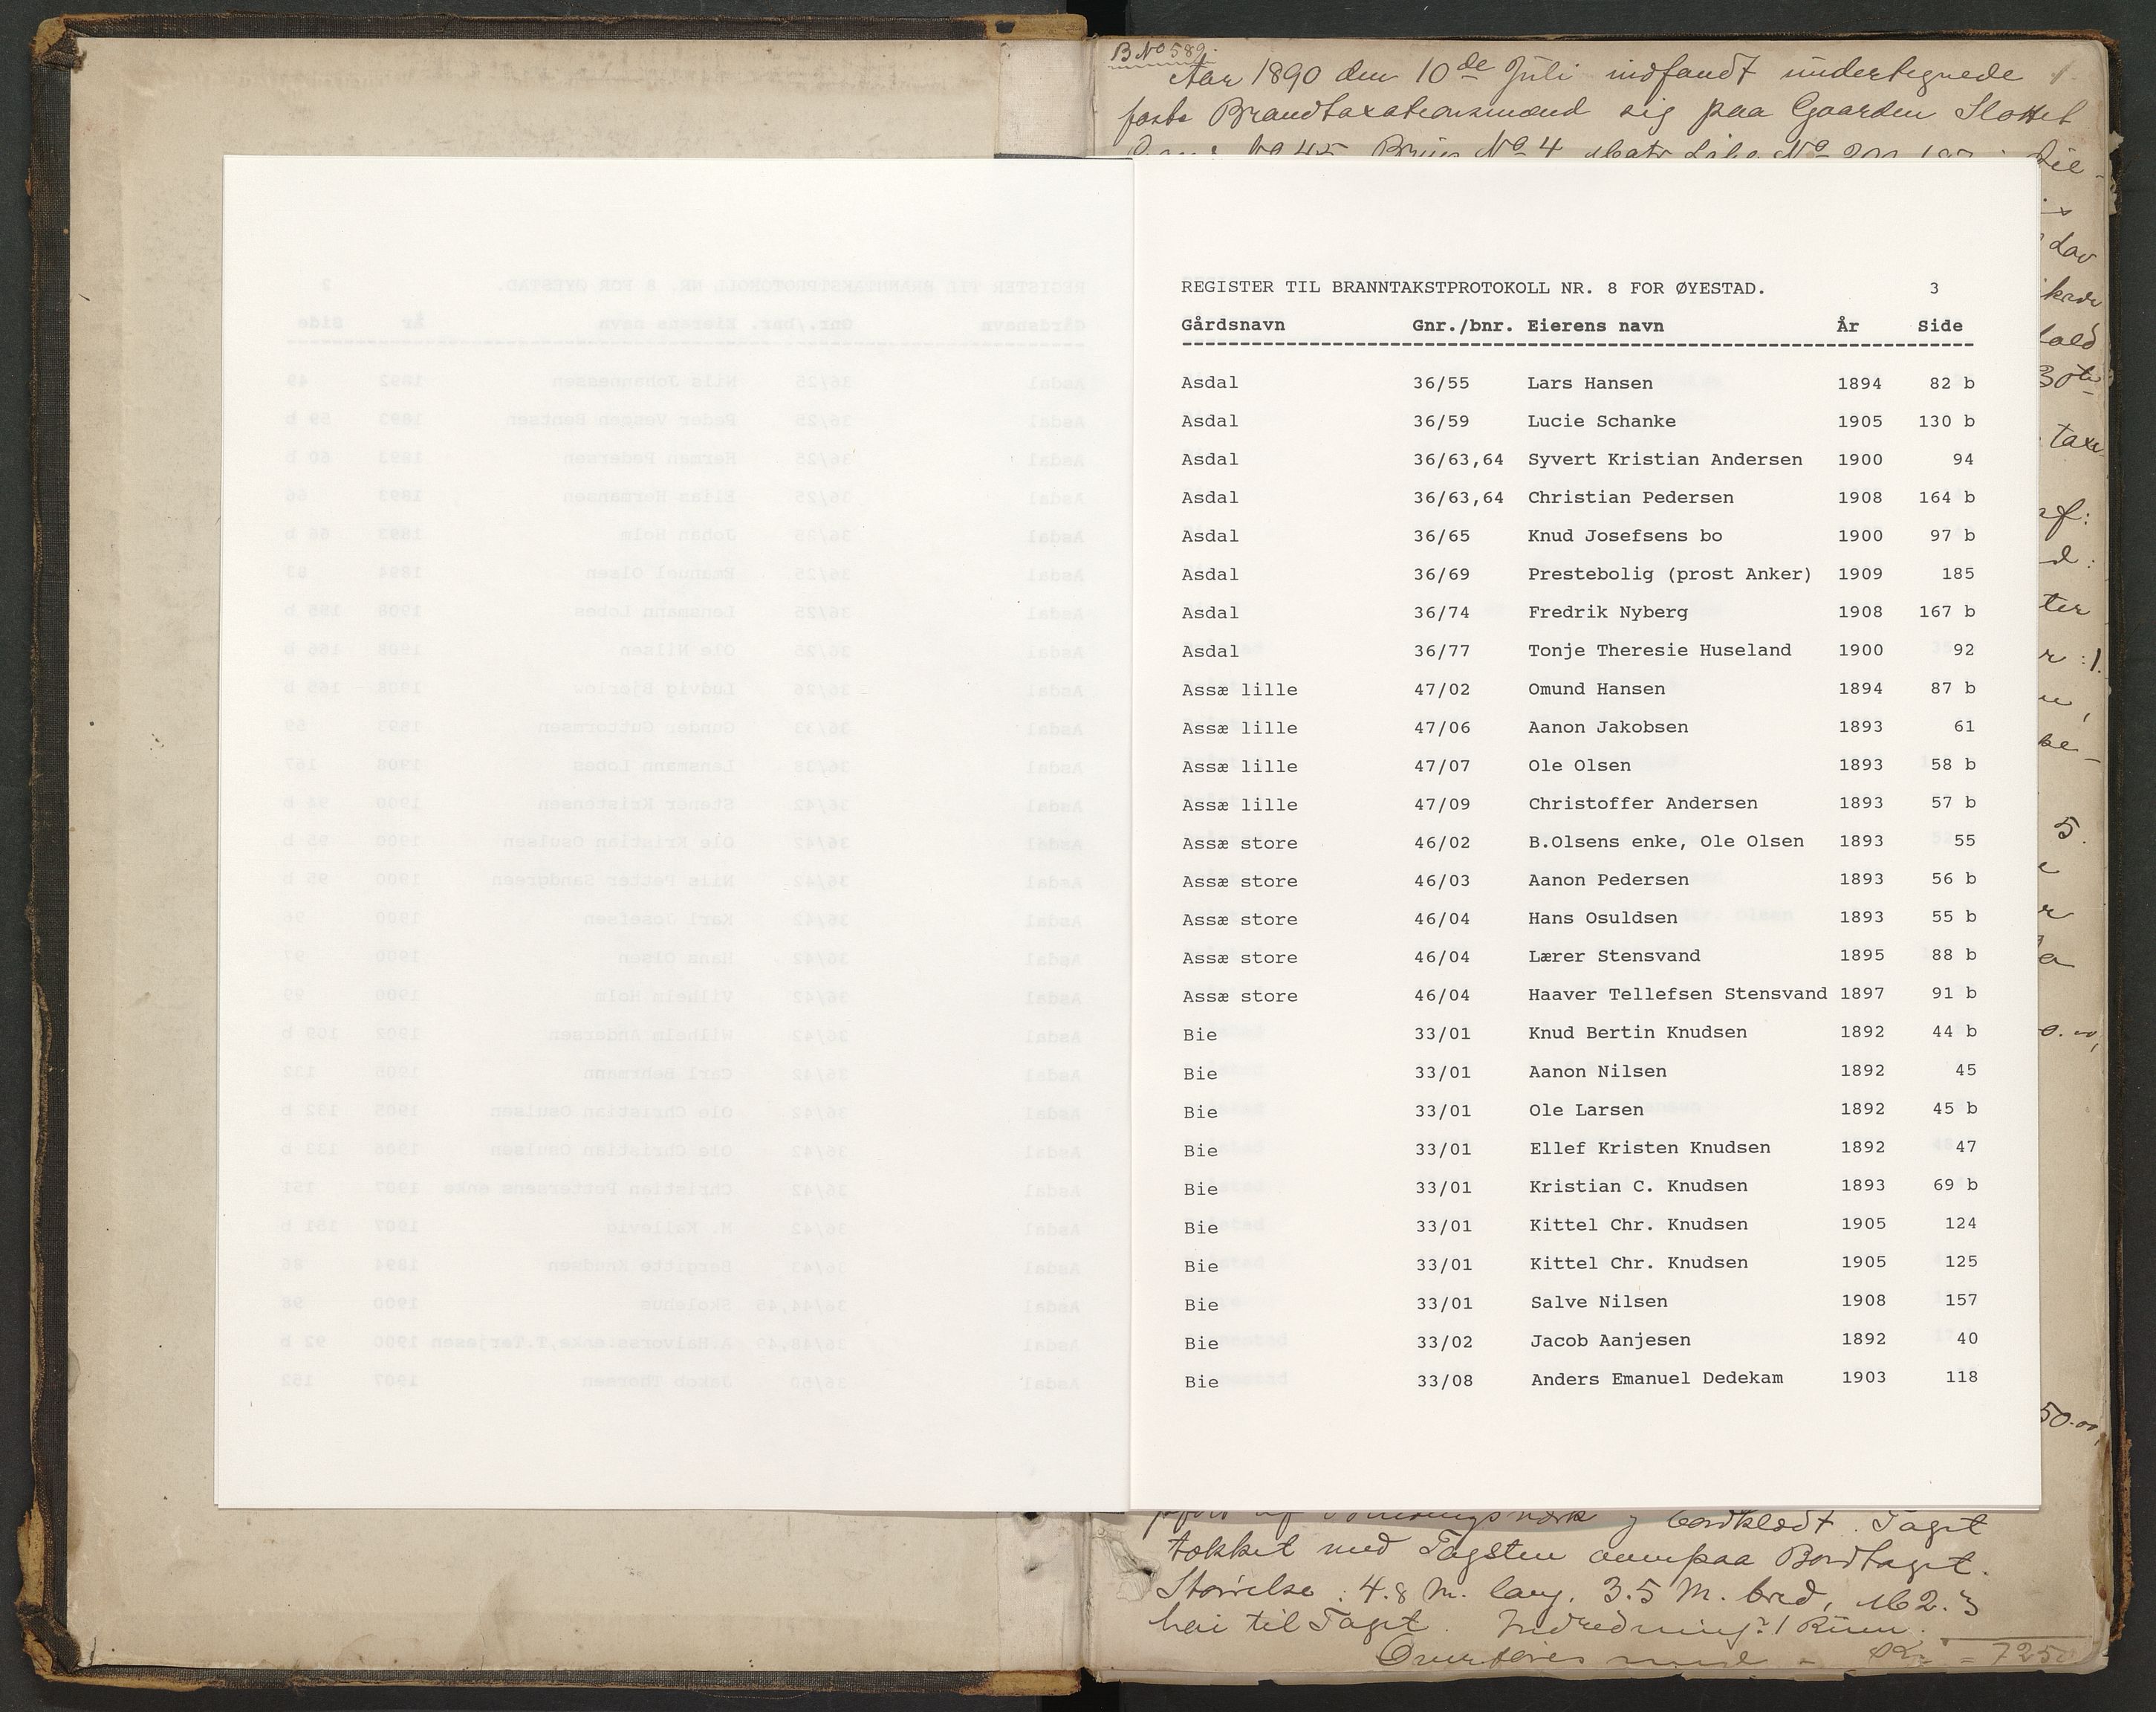 B No 589.
Aar 1890 den 10de Juli indfandt undertegnede 1.
faste Brandtaxationsmænd sig paa Gaarden Slottet
REGISTER TIL BRANNTAKSTPROTOKOLL NR. 8 FOR ØYESTAD. 3
Gårdsnavn Gnr./bnr. Eierens navn År Side
Asdal 36/55 Lars Hansen 1894 82 b
Asdal 36/59 Lucie Schanke 1905 130 b
Asdal 36/63,64 Syvert Kristian Andersen 1900 94
Asdal 36/63,64 Christian Pedersen 1908 164 b
Asdal 36/65 Knud Josefsens bo 1900 97 b
Asdal 36/69 Prestebolig (prost Anker) 1909 185
Asdal 36/74 Fredrik Nyberg 1908 167 b
Asdal 36/77 Tonje Theresie Huseland 1900 92
Assæ lille 47/02 Omund Hansen 1894 87 b
Assæ lille 47/06 Aanon Jakobsen 1893 61
Assæ lille 47/07 Ole Olsen 1893 58 b
Assæ lille 47/09 Christoffer Andersen 1893 57 b
Assæ store 46/02 B.Olsens enke, Ole Olsen 1893 55
Assæ store 46/03 Aanon Pedersen 1893 56 b
Assæ store 46/04 Hans Osuldsen 1893 55 b
Assæ store 46/04 Lærer Stensvand 1895 88 b
Assæ store 46/04 Haaver Tellefsen Stensvand 1897 91 b
Bie 33/01 Knud Bertin Knudsen 1892 44 b
Bie 33/01 Aanon Nilsen 1892 45
Bie 33/01 Ole Larsen 1892 45 b
Bie 33/01 Ellef Kristen Knudsen 1892 47
Bie 33/01 Kristian C. Knudsen 1893 69 b
Bie 33/01 Kittel Chr. Knudsen 1905 124
Bie 33/01 Kittel Chr. Knudsen 1905 125
Bie 33/01 Salve Nilsen 1908 157
Bie 33/02 Jacob Aanjesen 1892 40
Bie 33/08 Anders Emanuel Dedekam 1903 118
bordklædt. Taget
tækket med Tagsten ovenpaa Bordtaget.
Størrelse: 4.8 M. lang, 3.5 M. bred, 2.3
høi til Taget. Indredning: 1 Rum.
Overføres 7250